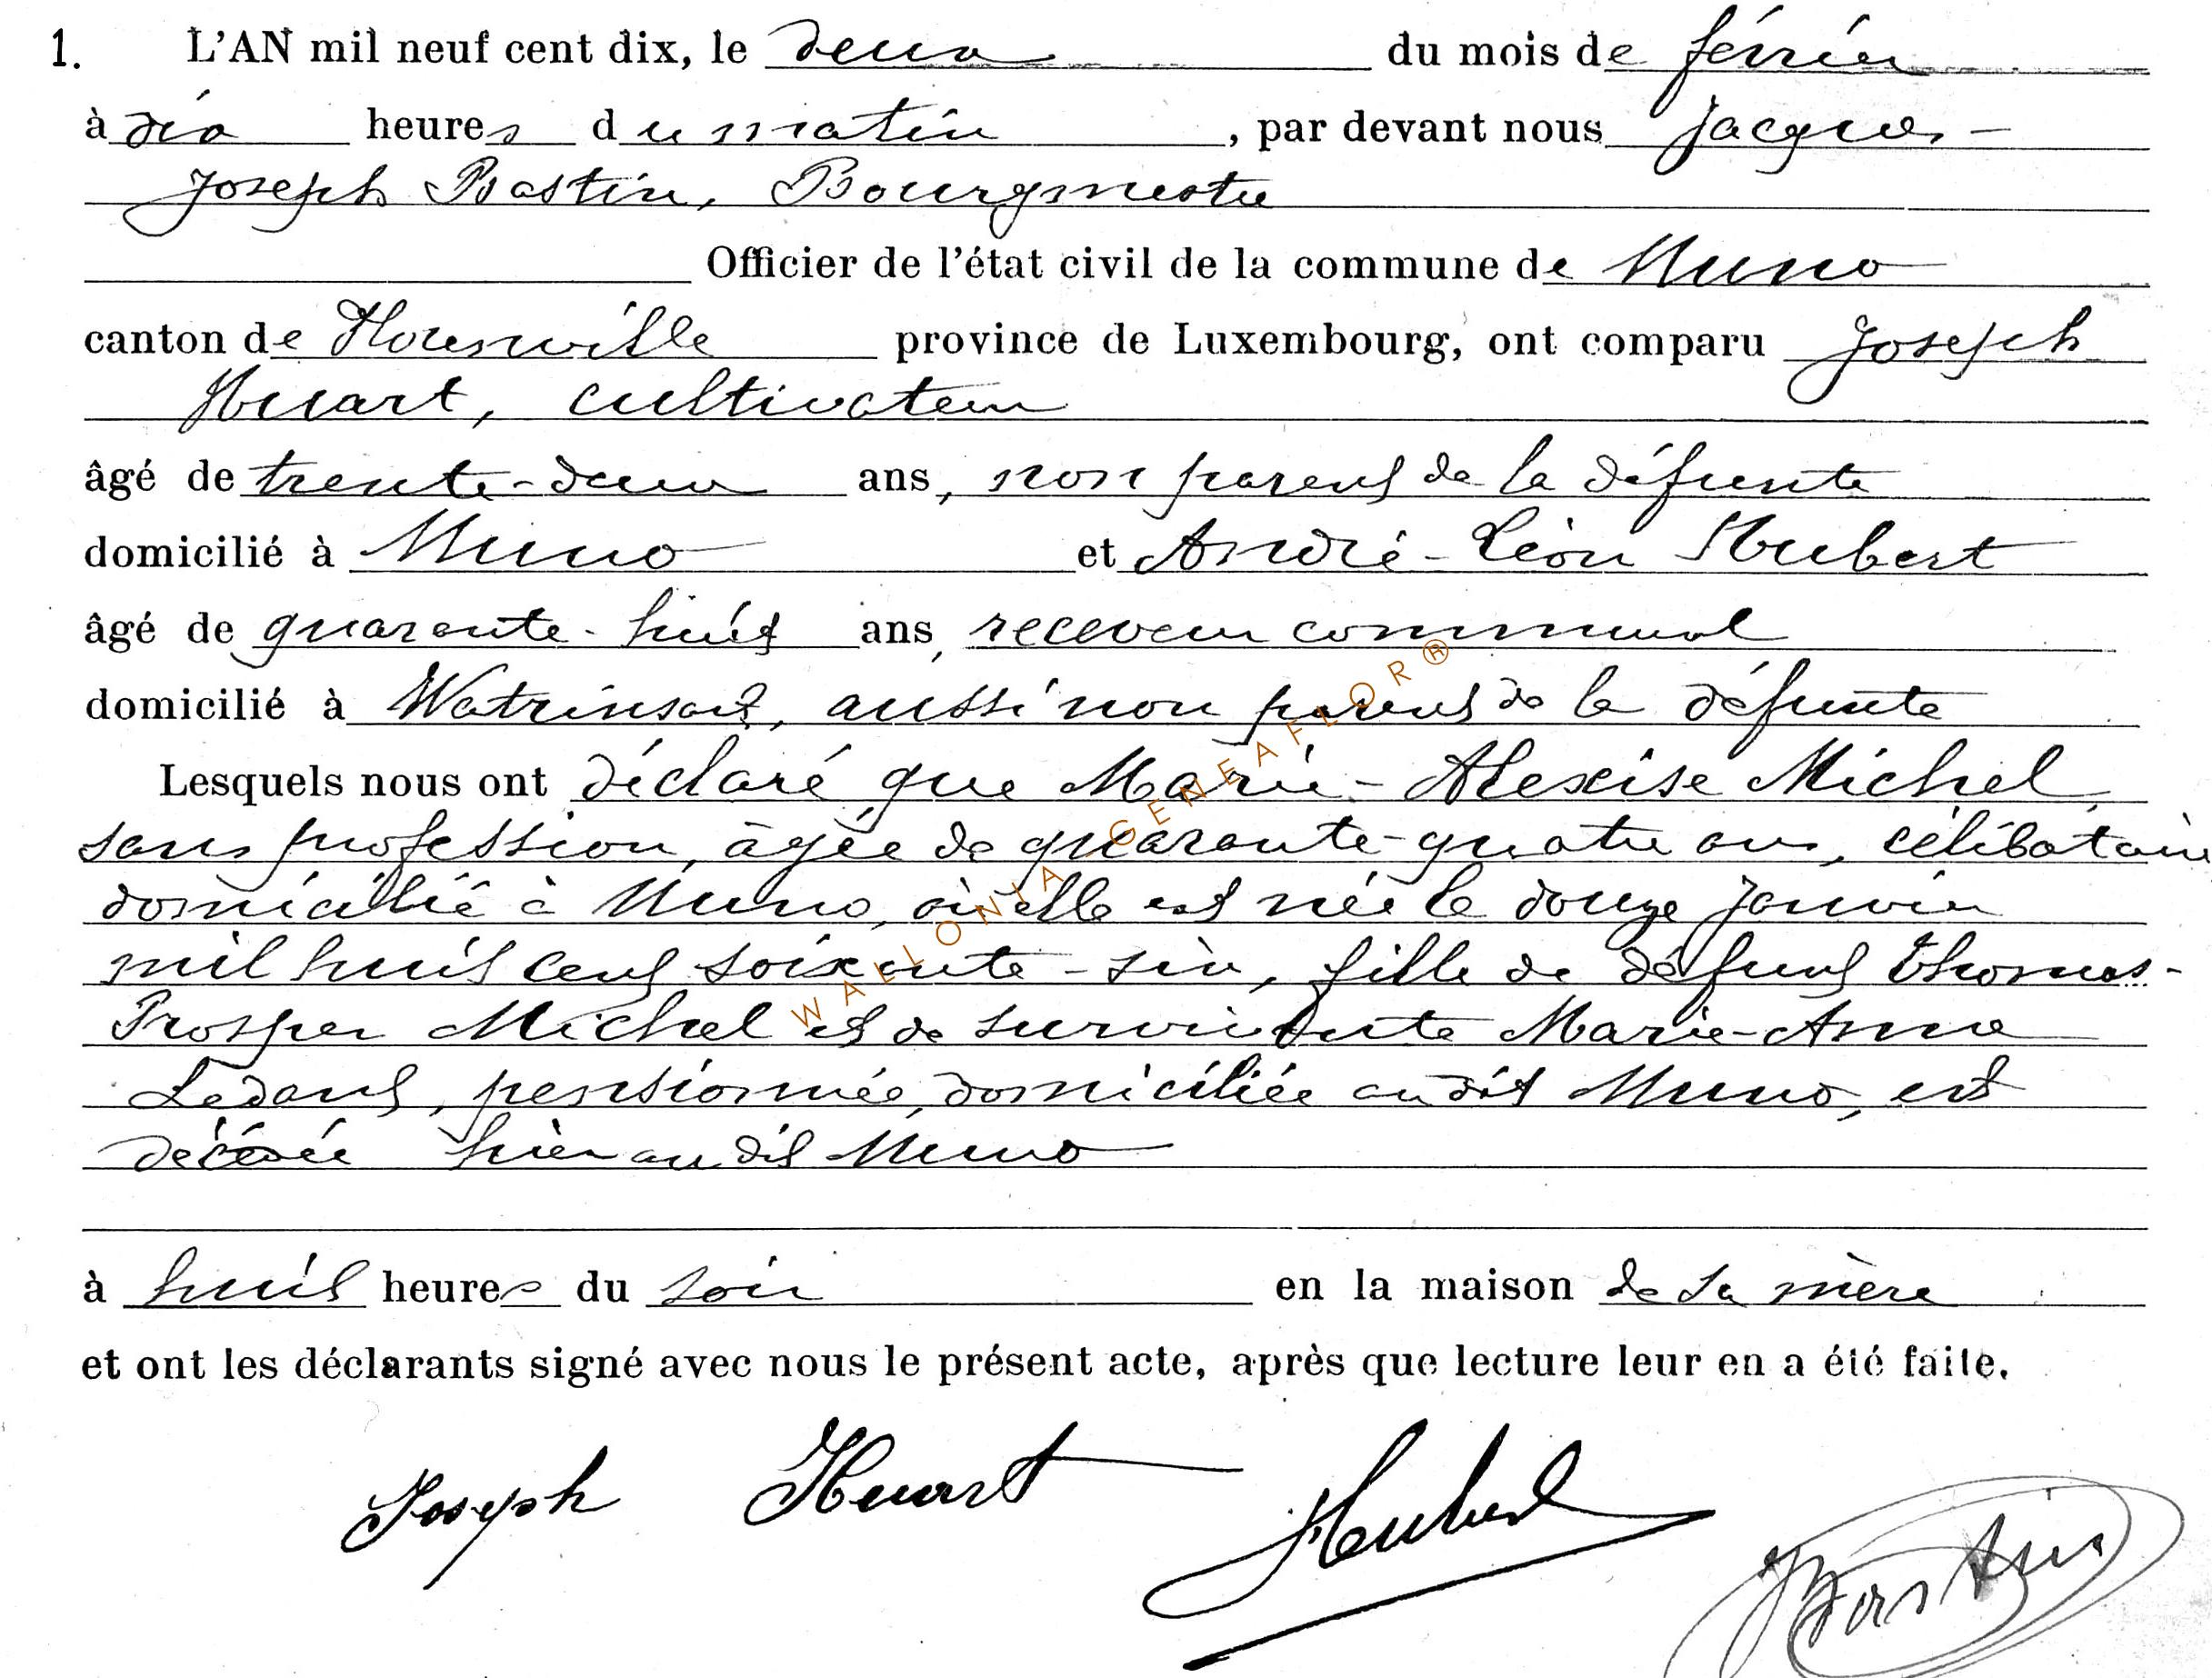 1. L'AN mil neuf cent dix, le deux du mois de février
à dix heures du matin, par devant nous Jacques-
Joseph Bastin, Bourgmestre
Officier de l'état civil de la commune de Muno
canton de Florenville province de Luxembourg, ont comparu Joseph
Huart, cultivateur
âgé de trente-deux ans, non parent de la défunte
domicilié à Muno et André-Léon Hubert
âgé de quarante-huit ans, receveur communal
domicilié à Watrinsart, aussi non parent de la défunte
Lesquels nous ont déclaré que Marie-Alexise Michel,
sans profession, âgée de quarante-quatre ans, célibataire
domiciliée à Muno, où elle est née le douze janvier
mil huit cent soixante-six, fille de défunt Thomas-
Prosper Michel et de survivante Marie-Anne
Ledant, pensionnée, domiciliée audit Muno, est
décédée hier audit Muno
à huit heures du soir en la maison de sa mère
et ont les déclarants signé avec nous le présent acte, après que lecture leur en a été faite.
Joseph Huart Hubert JBastin
WALLONIA GENEAFLOR®